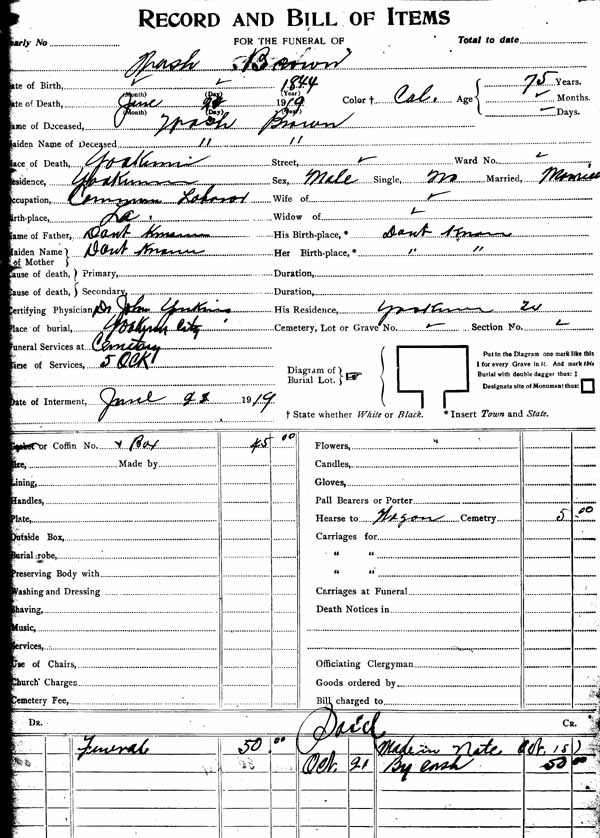 RECORD AND BILL OF ITEMS
early No FOR THE FUNERAL OF Total to date
Wash Brown
ate of Birth, 1844 75 Years.
(Month) (Day) (Year)
ate of Death, June 1919 Color † Col. Age Months.
(Month) (Day) (Year) Days.
ame of Deceased, Wash Brown
aiden Name of Deceased " "
lace of Death, Yoakum Street, Ward No.
esidence, Yoakum Sex, Male Single, No Married, Married
ccupation, Common Laborer Wife of
irth-place, La. Widow of
ame of Father, Dont Know His Birth-place,* Dont Know
aiden Name of Mother Dont Know Her Birth-place,* " "
ause of death, Primary, Duration,
ause of death, Secondary, Duration,
ertifying Physician, Dr John His Residence, Yoakum
lace of burial, Yoakum City Cemetery, Lot or Grave No. Section No.
uneral Services at Cemetary
ime of Services, 5 OCK
Diagram of Burial Lot.
Put in the Diagram one mark like this
I for every Grave in it. And mark this
Burial with double dagger thus: ‡
Designate site of Monument thus:
ate of Interment, June 1919
† State whether White or Black. * Insert Town and State.
or Coffin No. & Box 45.00 Flowers, "
ize, Made by Candles,
ining, Gloves,
andles, Pall Bearers or Porter
Plate, Hearse to Wagon Cemetry 5.00
utside Box, Carriages for
Burial robe, " "
Preserving Body with " "
Washing and Dressing Carriages at Funeral
having, Death Notices in
usic,
ervices,
se of Chairs, Officiating Clergyman
hurch Charges Goods ordered by
emetery Fee, Bill charged to
DR. Paid CR.
Funeral 50.00 Made in Note Oct. 15)
Oct. 21 By cash 50.00